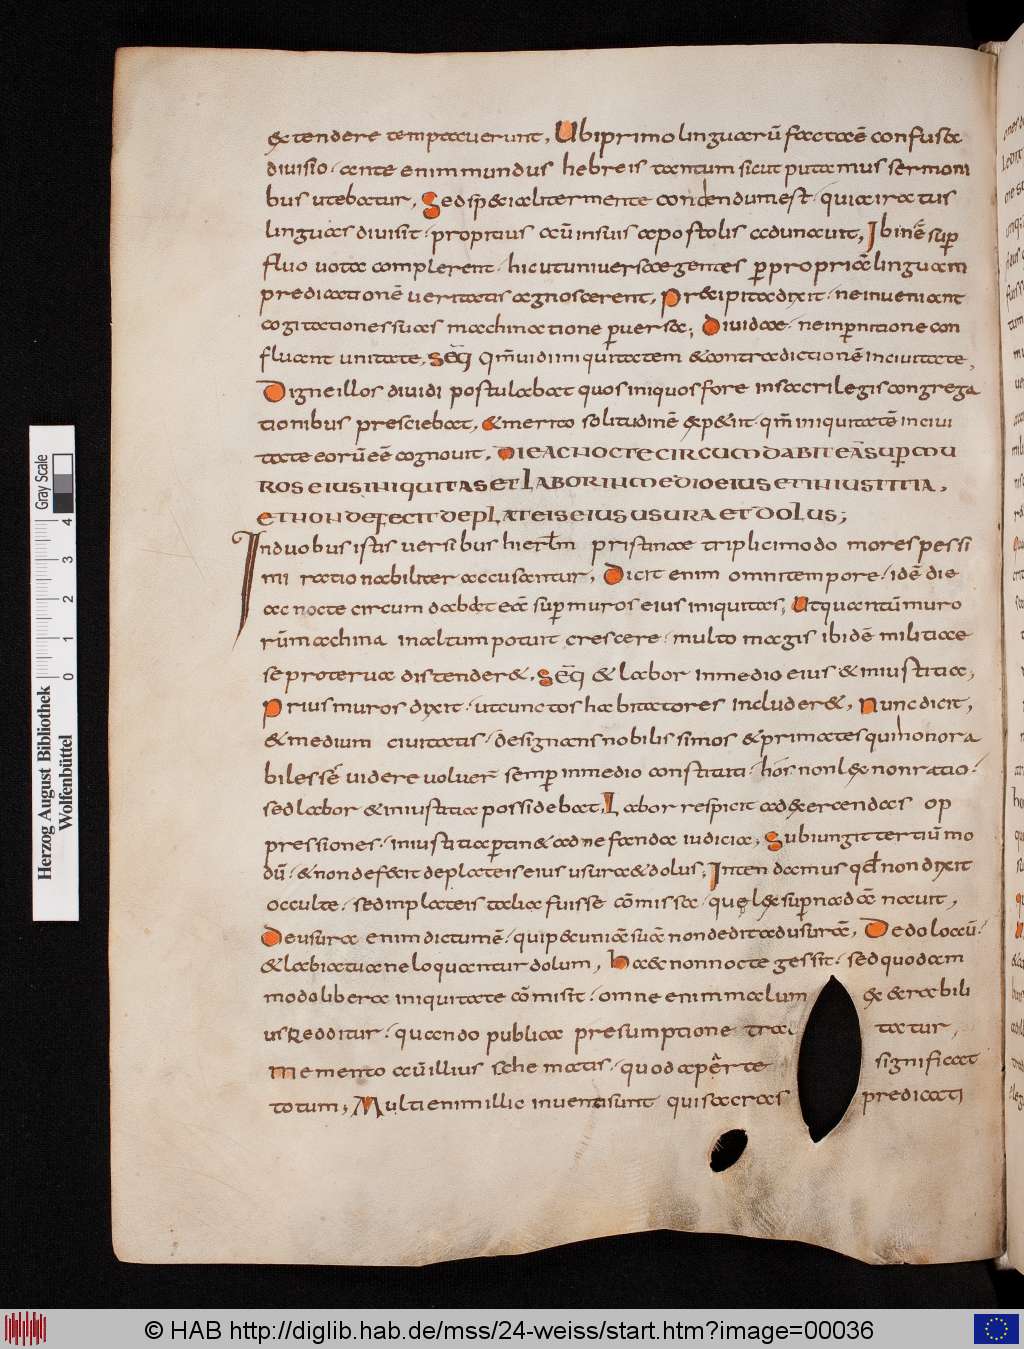 &tendere temptauerunt, Ubi primo linguarū factaē confusa
diuisio· ante enim mundus hebreis tantum sicut putamus sermoni
bus utebatur, Sed sp&ialiter mente condendum est· quia iratus
linguas diuisit· propitius aūt in suis apostolis adunauit, Ibi nē̄ sup
fluo uota complerent· hic ut uniuersae gentes p propriā linguam
predicationē ueritatis agnoscerent, Pr&ipita dixit· ne inueniant
cogitationes suas machinatione puersa; Diuidae· ne in pnitione con
fluant unitate, Seq̄ Qm̄ uidi iniquitatem & contradictionē in ciuitate,
Digne illos diuidi postulabat quos iniquos fore in sacrilegis congrega
tionibus presciebat, & merito solitudinē exp&iit· qm̄ iniquitatē in ciui
tate eorū eē cognouit, DIE AC NOCTE CIRCUMDABIT EĀ SUP MU
ROS EIUS INIQUITAS ET LABOR IN MEDIO EIUS ET INIUSTITIA,
ET NON DEFECIT DE PLATEIS EIUS USURA ET DOLUS;
In duobus istis uersibus hierłm pristinae triplici modo mores pessi
mi rationabiliter accusantur, Dicit enim omni tempore· idē die
ac nocte circumdabit eā sup muros eius iniquitas; Ut quantū muro
rūm machina in altum potuit crescere· multo magis ibidē militiae
se proterua distender&, Seq̄ & labor in medio eius & iniustitia;
Prius muros dixit· ut cunctos habitatores includer&, Nunc dicit,
& medium ciuitatis· designans nobilissimos & primates qui honora
biles sē uidere uoluer̄ semp in medio constituti· hos non lex non ratio·
sed labor & iniustitia possidebat, Labor respicit ad exercendas op
pressiones· iniustitia ptin& ad nefanda iudicia, Subiungit tertiū mo
dū· & non defecit de plateis eius usura & dolus; Intendamus qd non dixit
occulte· sed in plateis talia fuisse cōmissa· quę lex supna dāna uit,
De usura enim dictum ē· qui pecuniā suā non dedit ad usurā, De dolo aū·
& labia tua ne loquantur dolum, Haec non nocte gessit· sed quodam
modo libera iniquitate cōmisit· omne enim malum ex&crabili
us redditur· quando publica presumptione trac tatur,
Memento aūt illius schematis· quod a parte significat
totum; Multi enim illic inuenti sunt qui sacras predicati
Herzog August Bibliothek
Wolfenbüttel
0 1 2 3 4
Gray Scale
© HAB http://diglib.hab.de/mss/24-weiss/start.htm?image=00036